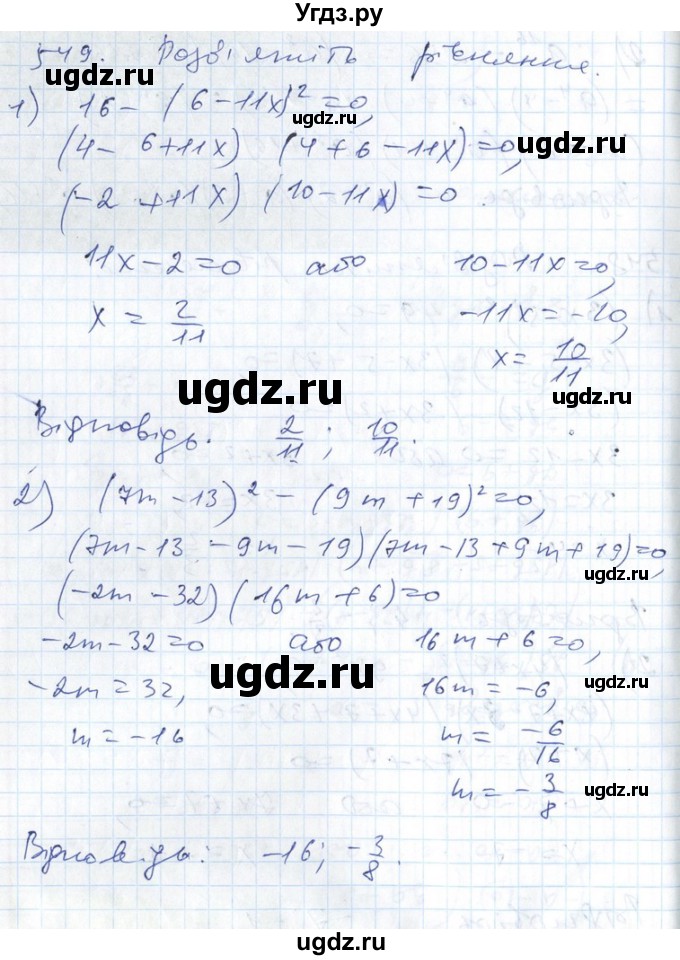 Угдз.ру
549. Розв'яжіть рівняння.
1) 16 - (6 - 11x)² = 0,
(4 - 6 + 11x) (4 + 6 - 11x) = 0,
(-2 + 11x) (10 - 11x) = 0.
11x - 2 = 0 або 10 - 11x = 0,
x = 2/11 -11x = -10,
x = 10/11
Відповідь. 2/11; 10/11.
2) (7m - 13)² - (9m + 19)² = 0,
(7m - 13 - 9m - 19)(7m - 13 + 9m + 19) = 0,
(-2m - 32)(16m + 6) = 0
-2m - 32 = 0 або 16m + 6 = 0,
-2m = 32, 16m = -6,
m = -16 m = -6/16
m = -3/8
Відповідь: -16; -3/8.
ugdz.ru
ugdz.ru
ugdz.ru
ugdz.ru
ugdz.ru
ugdz.ru
ugdz.ru
ugdz.ru
ugdz.ru
ugdz.ru
ugdz.ru
ugdz.ru